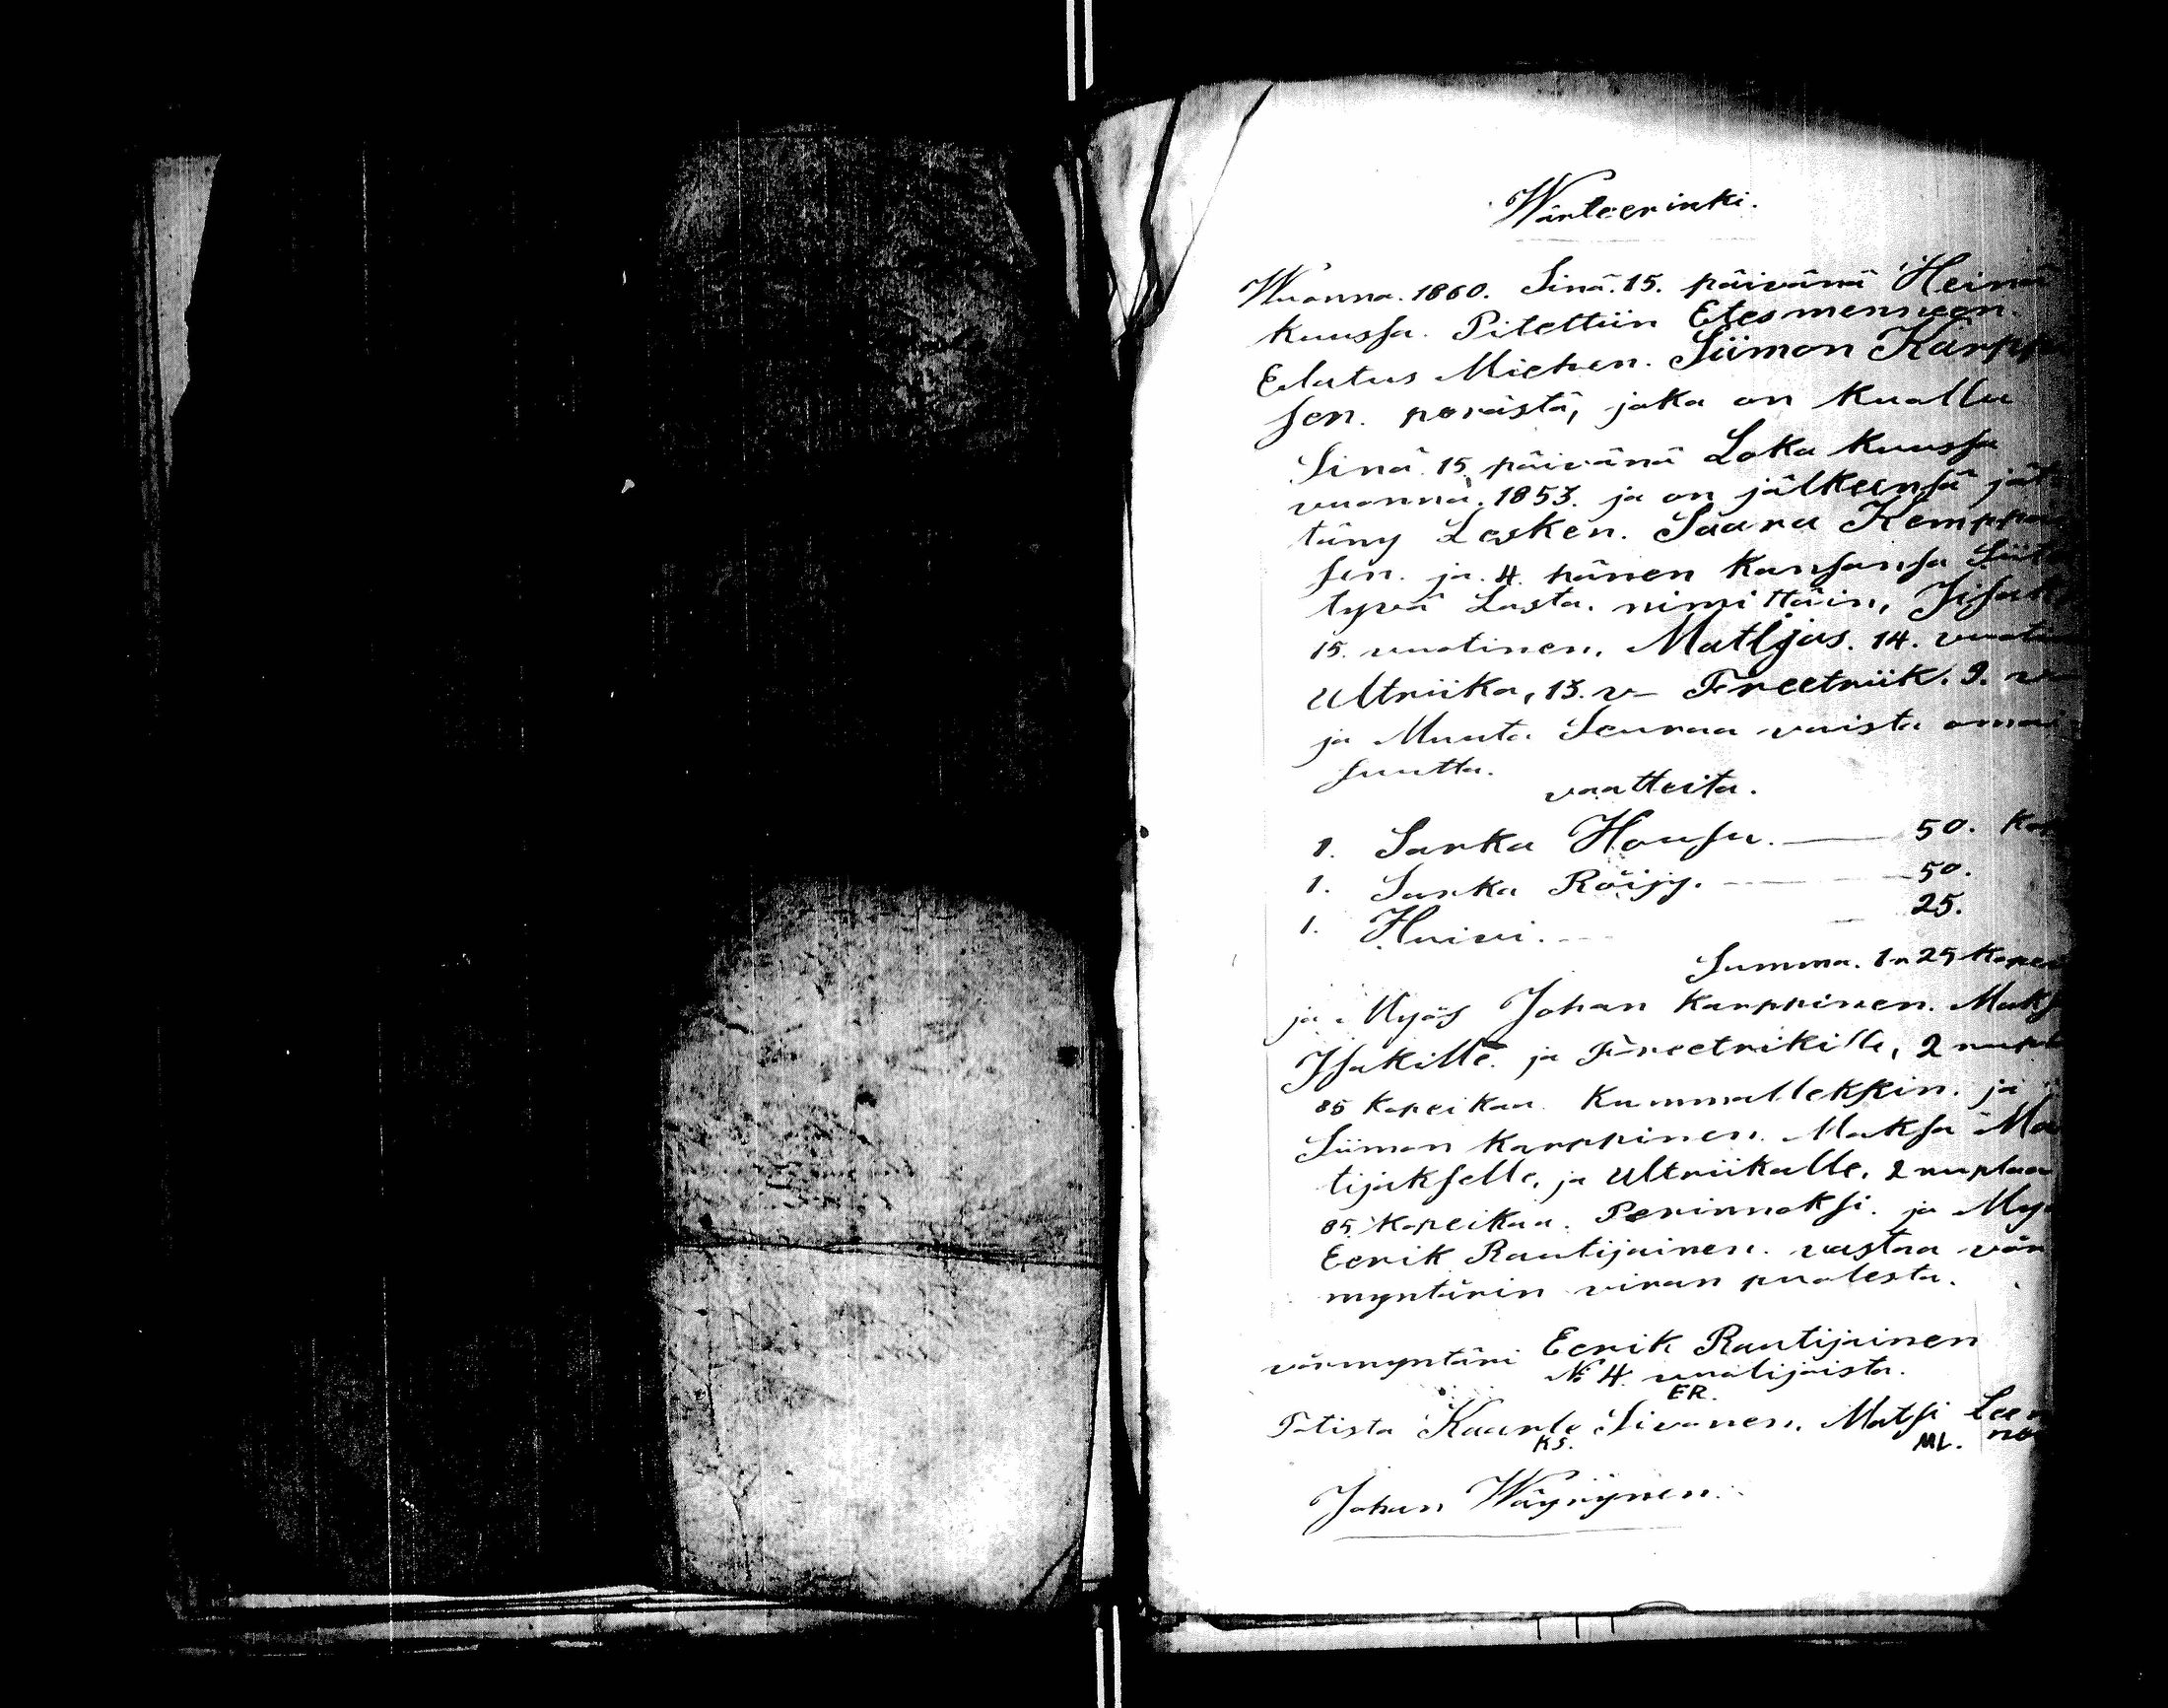 Wärteerinki.
Wuonna. 1860. Sinä. 15. päivänä Heinä
kuussa. Pitettiin Etesmenneen.
Elatus Miehen. Siimon Karppi
sen. perästä, joka on kuallu
Sinä 15 päivänä Loka kuussa
vuonna. 1853. ja on jälkeensä jät
täny Lesken. Saara Kemppai
sen. ja. 4. hänen kansansa Siit
tyvä Lasta. nimittäin, Iisak
15. vuatinen, Mattijas. 14. vuatin
Ultriika, 13. v- Freetriik. 9. v
ja Muuta Seuraa vaista omai
suutta.
vaatteita.
1. Sarka Housu. — 50. Kop
1. Sarka Röijy. — 50.
1. Huivi. — 25.
Summa. 1 r 25 Kopei
ja Myös Johan Karppinen. Maks
Isakille ja Freetrikille, 2 rupl
85 kopeikaa Kummallekkin. ja
Siimon Karppinen. Maksa Ma
tijakselle, ja Ultriikalle, 2 ruplaa
85 Kopeikaa. Perinnöksi. ja Myö
Eerik Rautijainen. vastaa vär
myntärin viran puolesta.
värmyntäri Eerik Rautijainen
No 4. vuolijoista.
ER.
Totista Kaarle Sivonen. Matsi Lee
KS. ML. no
Johan Wäyrynen.